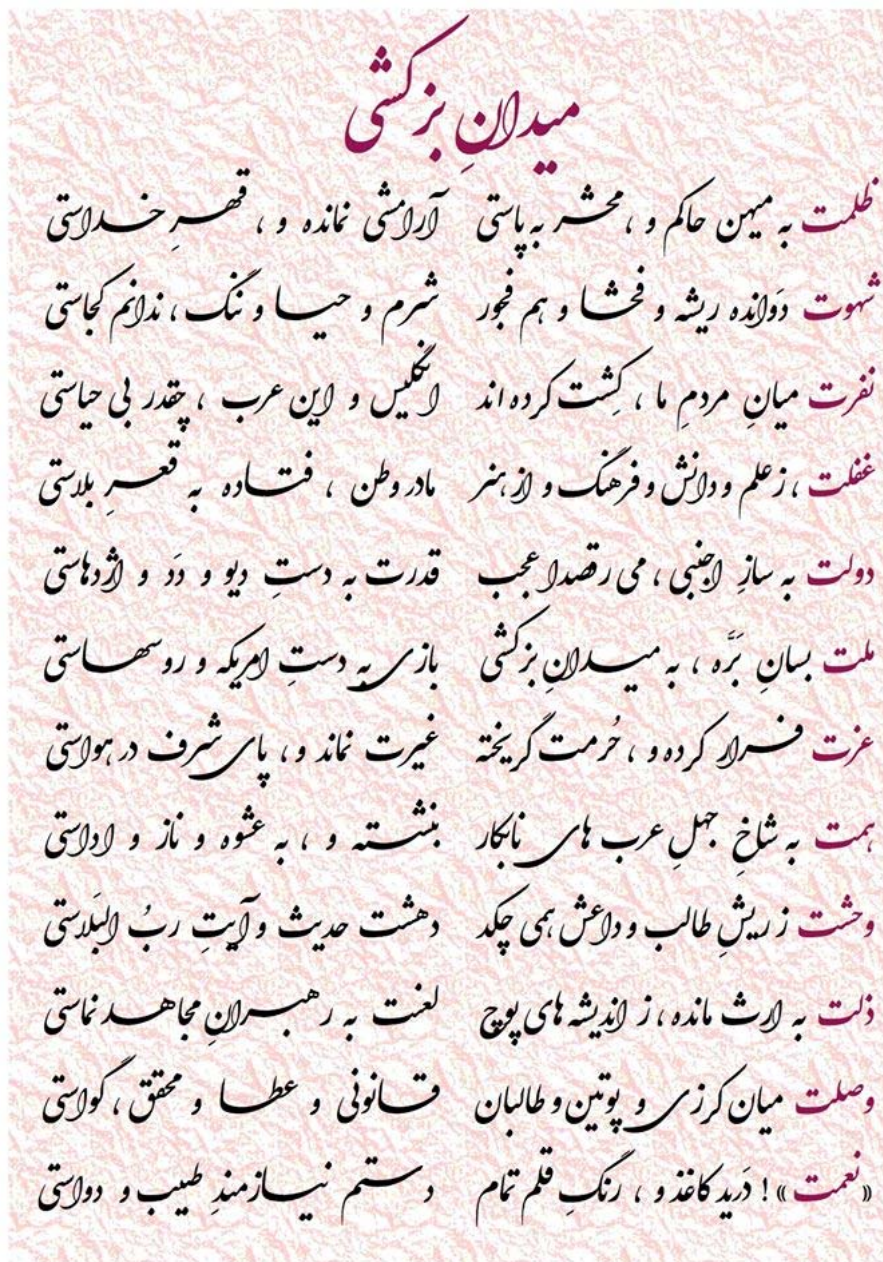 میدانِ بزکشی
ظلمت به میهن حاکم و ، محشر به پاستی آرامشی نمانده و ، قهرِ خداستی
شهوت دَوانده ریشه و فحشا و هم فجور شرم و حیا و ننگ ، ندانم کجاستی
نفرت میانِ مردمِ ما ، کِشت کرده اند انگلیس و این عرب ، چقدر بی حیاستی
غفلت ، زعلم و دانش و فرهنگ و از هنر مادر وطن ، فتاده به قعرِ بلاستی
دولت به سازِ اجنبی ، می رقصدا عجب قدرت به دستِ دیو و دَد و اژدهاستی
ملت بسانِ بَرَّه ، به میدانِ بزکشی بازی به دستِ امریکه و روسهاستی
عزت فرار کرده و ، حُرمت گریخته غیرت نماند و ، پای شرف در هواستی
همت به شاخِ جهلِ عرب های نابکار بنشسته و ، به عشوه و ناز و اداستی
وحشت ز ریشِ طالب و داعش همی چکد دهشت حدیث و آیتِ ربُ البَلاستی
ذلت به ارث مانده ، ز اندیشه های پوچ لعنت به رهبرانِ مجاهد نماستی
وصلت میان کرزی و پوتین و طالبان قانونی و عطا و محقق ، گواستی
«نعمت» ! دَرید کاغذ و ، رنگِ قلم تمام دستم نیازمندِ طبیب و دواستی